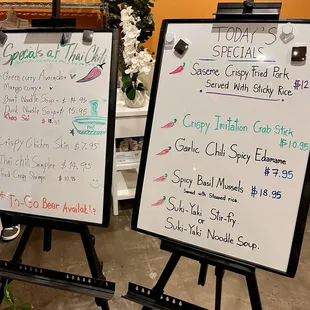 Specials at Thai Chili
Green curry Avocado
Mango curry
Boat Noodle Soup - $ 14.95
Duck Noodle Soup - $ 15.95
Khao Soi
Crispy Chicken Skin $ 7.95
Thai chili Sampler - $ 14.95
Fried Crispy Shrimps $ 10.95
To-Go Beer Available
TODAY'S
SPECIALS
Saseme Crispy Fried Pork
Served With Sticky Rice
$12
Crispy Imitation Crab Stick
$10.95
Garlic Chili Spicy Edamame
$7.95
Spicy Basil Mussels
Served with Steamed rice
$18.95
Suki-Yaki Stir-fry
or
Suki-Yaki Noodle Soup.